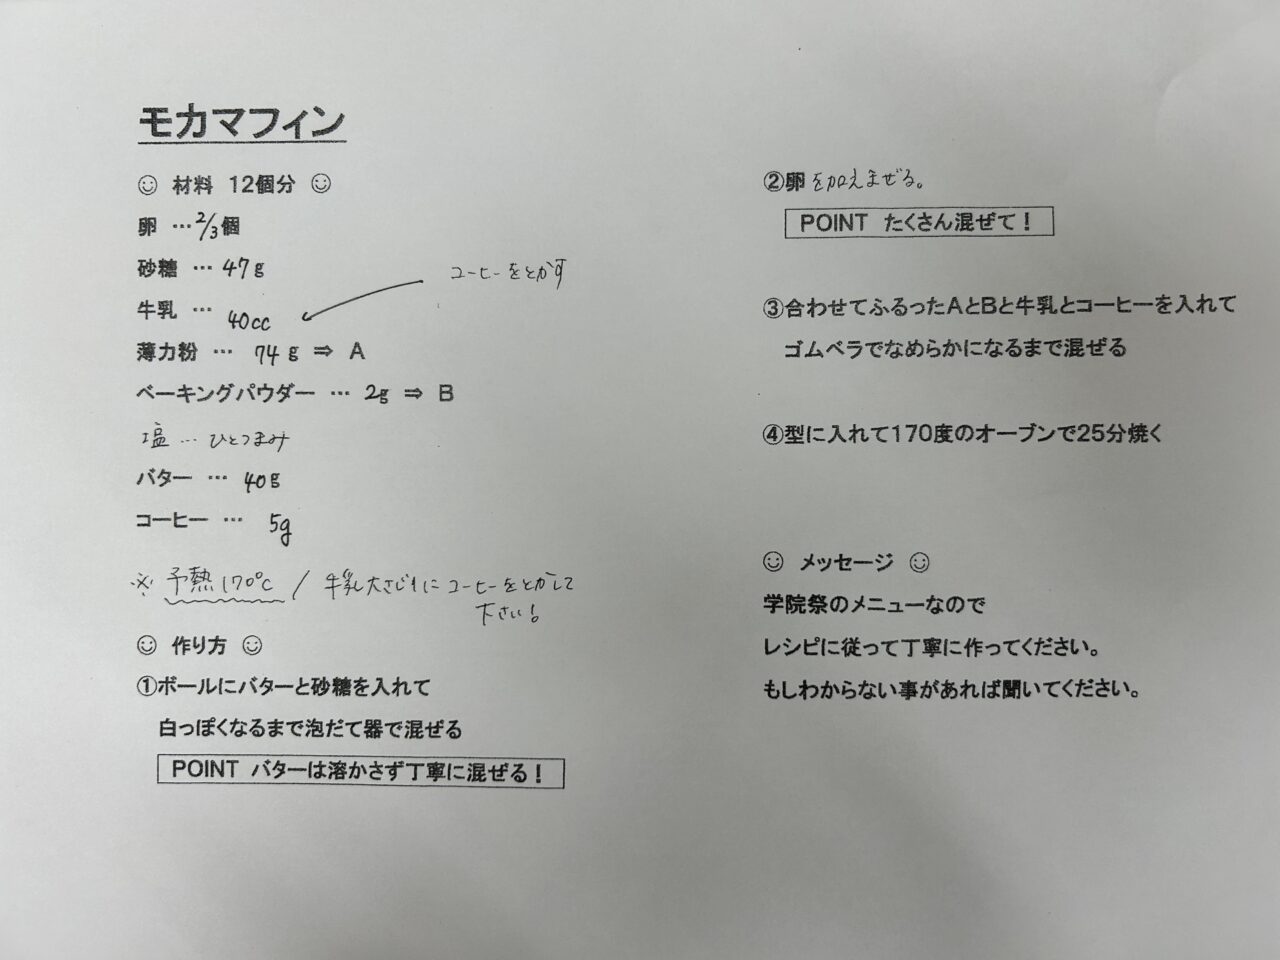 モカマフィン
☺ 材料 12個分 ☺
卵 …2/3個
砂糖 … 47g
コーヒーをとかす
牛乳 … 40cc
薄力粉 … 74g ⇒ A
ベーキングパウダー … 2g ⇒ B
塩 … ひとつまみ
バター … 40g
コーヒー … 5g
※ 予熱170℃ / 牛乳大さじ1にコーヒーをとかして
下さい!
☺ 作り方 ☺
①ボールにバターと砂糖を入れて
白っぽくなるまで泡だて器で混ぜる
POINT バターは溶かさず丁寧に混ぜる！
②卵を加えまぜる。
POINT たくさん混ぜて！
③合わせてふるったAとBと牛乳とコーヒーを入れて
ゴムベラでなめらかになるまで混ぜる
④型に入れて170度のオーブンで25分焼く
☺ メッセージ ☺
学院祭のメニューなので
レシピに従って丁寧に作ってください。
もしわからない事があれば聞いてください。